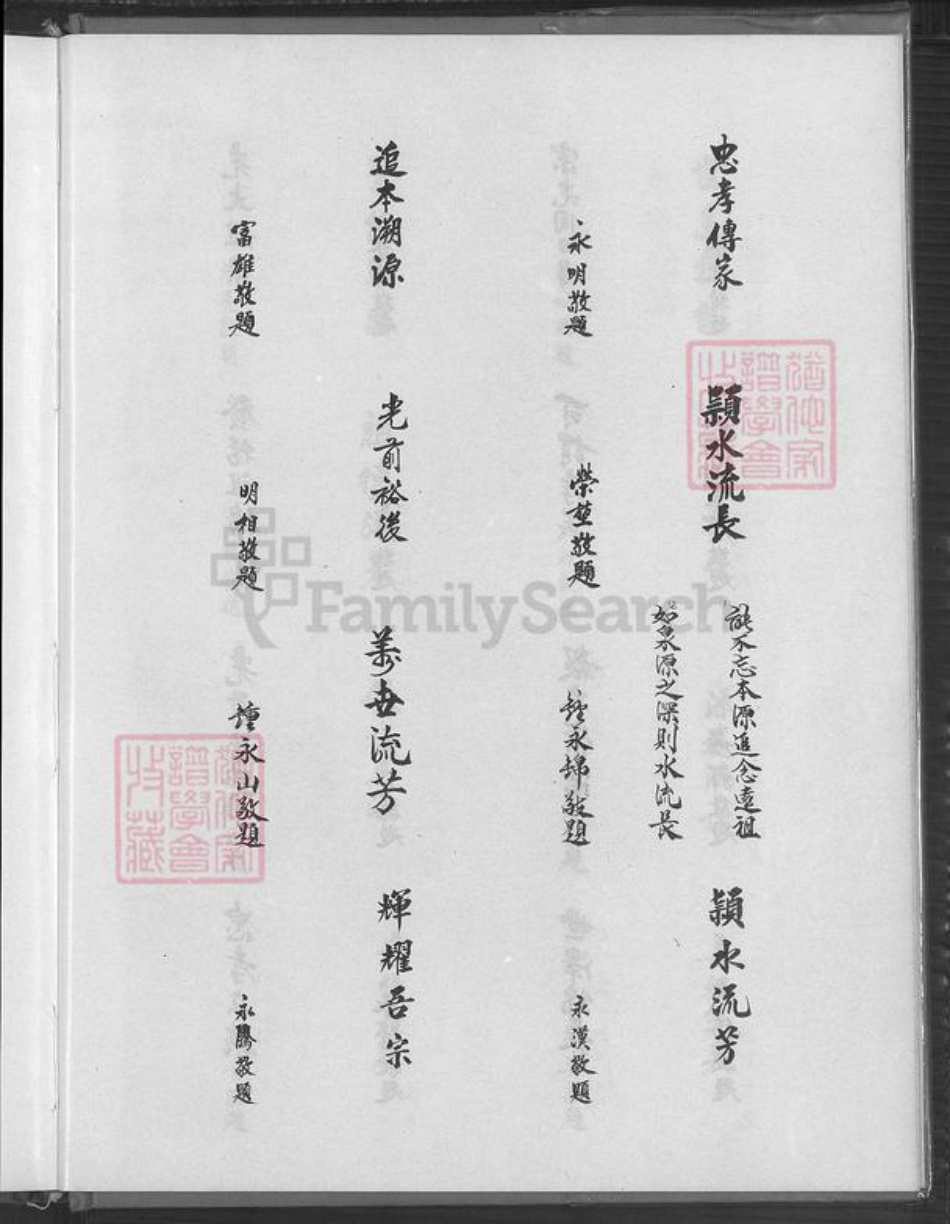 忠孝傳家
永明敬題
穎水流長
能不忘本源追念遠祖
如水源之深則水流長
榮塹敬題
穎水流芳
鍾永錦敬題
永漢敬題
追本溯源
富雄敬題
光前裕後
明相敬題
萬世流芳
鍾永山敬題
輝耀吾宗
永騰敬題
猶他家
譜學會
收藏
猶他家
譜學會
收藏
FamilySearch